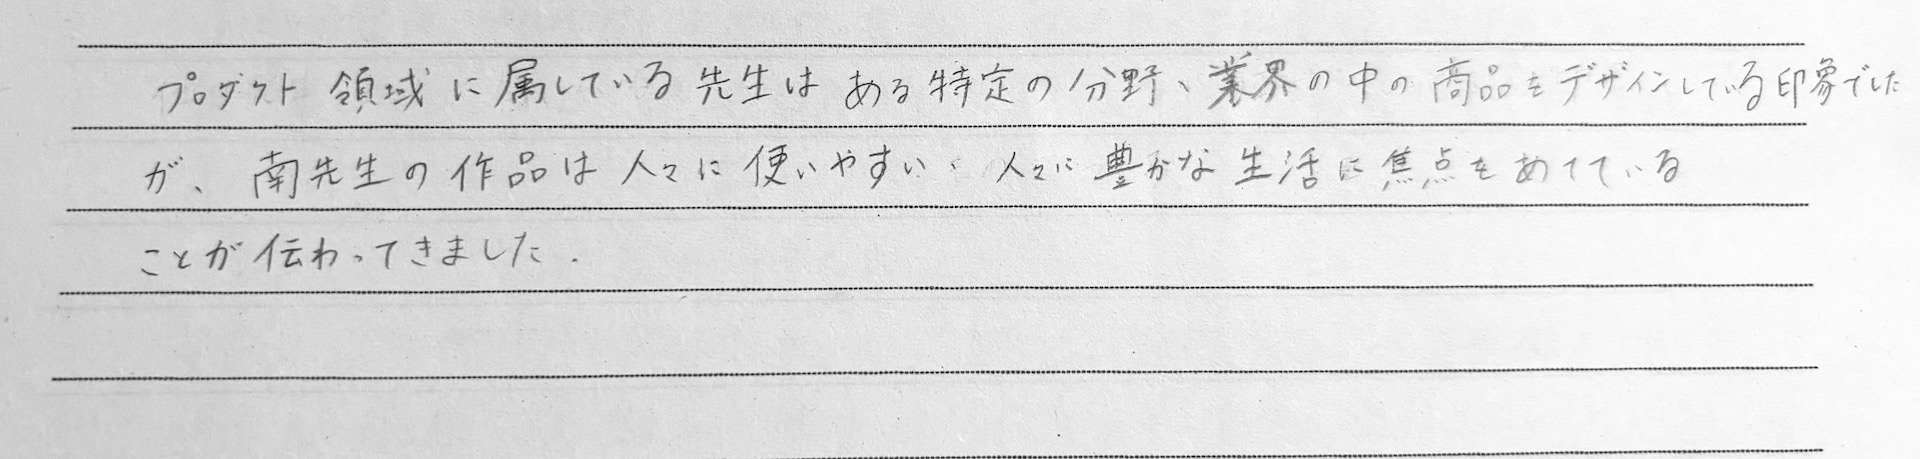 プロダクト領域に属している先生はある特定の分野、業界の中の商品をデザインしている印象でした
が、南先生の作品は人々に使いやすい、人々に豊かな生活に焦点をあてている
ことが伝わってきました.